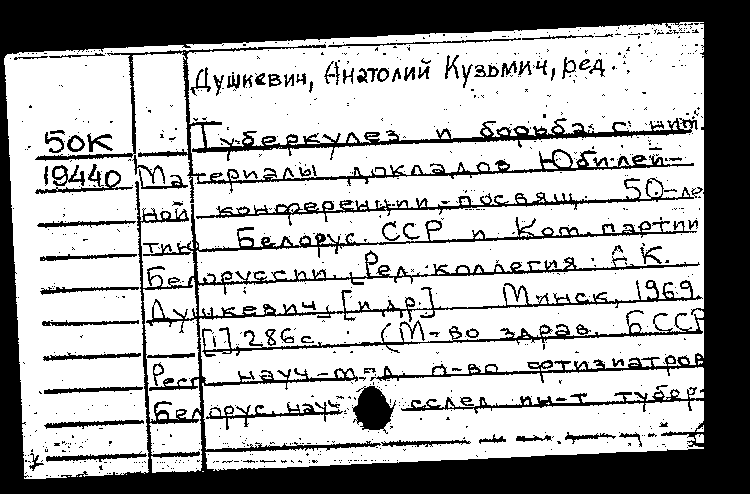 Душкевич, Анатолий Кузьмич, ред.
50К Туберкулез и борьба с ним.
19440 Материалы докладов Юбилей-
ной конференции, посвящ. 50-ле
тию Белорус. ССР и Ком. партии
Белоруссии. [Ред. коллегия: А.К.
Душкевич, [и др.] Минск, 1969.
[1], 286 с. (М-во здрав. БССР
Респ. науч.-мед. о-во фтизиатров
Белорус. науч сслед ин-т тубер-